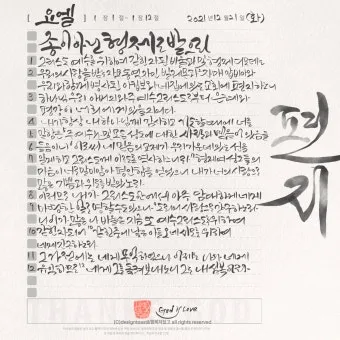 요엘 1장 1절~1장 12절 2021년 12월 21일 (화)
종이 아닌 형제로 받으라
1 그리스도 예수를 위하여 갇힌 자 된 바울과 및 형제 디모데는
2 우리의 사랑을 받는 자요 동역자인 빌레몬과 자매 압비아와
우리와 함께 병사 된 아킵보와 네 집에 있는 교회에 편지하노니
3 하나님 우리 아버지와 주 예수 그리스도로부터 은혜와
평강이 너희에게 있을지어다
4 내가 항상 내 하나님께 감사하고 기도할 때에 너를
5 말함은 주 예수와 및 모든 성도에 대한 네 사랑과 믿음이 있음을
6 들음이니 이로써 네 믿음의 교제가 우리 가운데 있는 선을
7 알게 하고 그리스도께 이르도록 역사하느니라 형제여 성도들의
마음이 너로 말미암아 평안함을 얻었으니 내가 너의 사랑으로
많은 기쁨과 위로를 받았노라
8 이러므로 내가 그리스도 안에서 아주 담대하게 네게
9 마땅한 일로 명할 수도 있으나 도리어 사랑으로써 간구하노라
나이가 많은 나 바울은 지금 또 예수 그리스도를 위하여
10 갇힌 자 되어 갇힌 중에서 낳은 아들 오네시모를 위하여
네게 간구하노라
11 그가 전에는 네게 무익하였으나 이제는 나와 네게
12 유익하므로 네게 그를 돌려보내노니 그는 내 심복이라
편지
God is Love